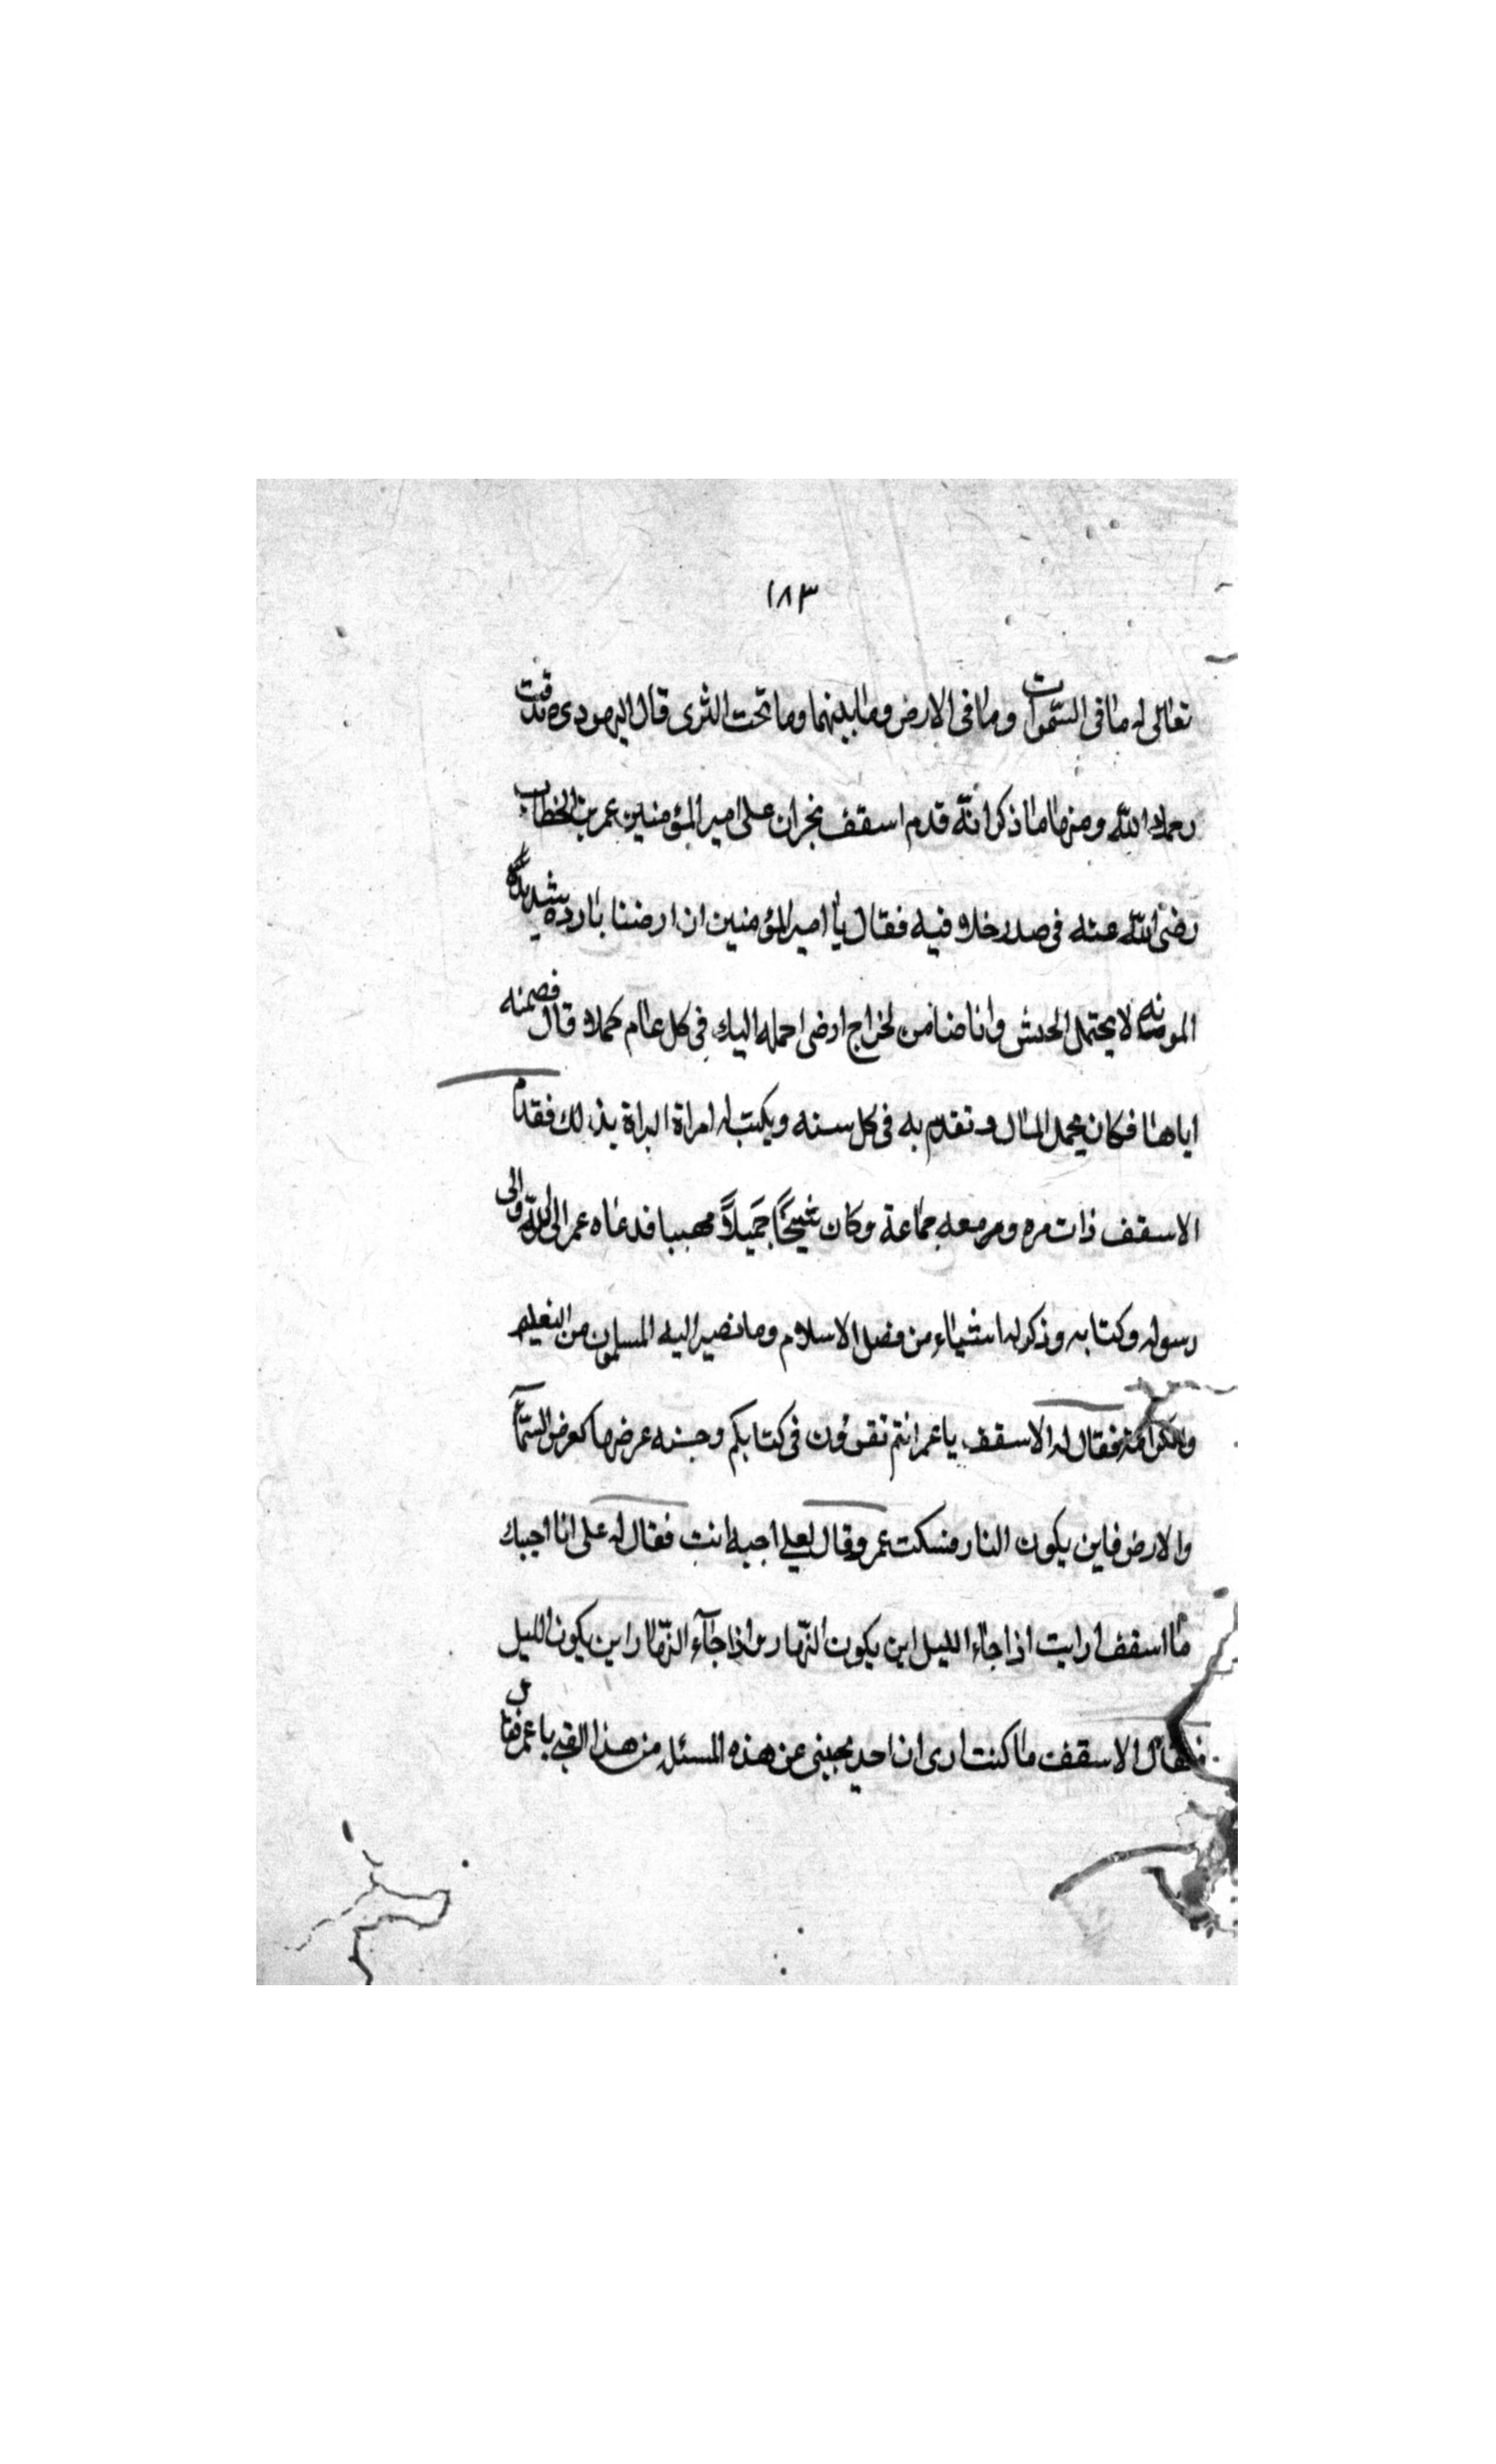 ١٨٣
تعالى له ما فى السموات وما فى الارض وما بينهما وما تحت الثرى قال اليهودى صدقت
رحمك الله ومنها ما ذكر انه قدم اسقف نجران على امير المؤمنين عمر بن الخطاب
رضى الله عنه فى صدر خلافيه فقال يا امير المؤمنين ان ارضنا بارده شديدة
المونه لا يحتمل الجيش وانا ضامن لخراج ارضى احمله اليك فى كل عام كملا قال فضمنه
اياها فكان يحمل المال و تقدم به فى كل سنه ويكتب له البراة بذلك فقدم
الاسقف ذات مره ومعه جماعة وكان شيخًا جميلاً مهيبا فدعاه عمر الى الله والى
رسوله وكتابه وذكر له اشياء من فضل الاسلام وما تصير اليه المسلمون من النعيم
والكرامة فقال له الاسقف يا عمر انتم تقرؤن فى كتابكم وجنه عرضها كعرض السمآ
والارض فاين يكون النار فسكت عمر وقال لعلى اجبه انت فقال له على انا اجيبك
يا اسقف ارايت اذا جاء الليل اين يكون النهار واذا جآء النهار اين يكون الليل
فقال الاسقف ما كنت ارى ان احد يجيبنى عن هذه المسئله من هذا الفتى يا عمر فقال